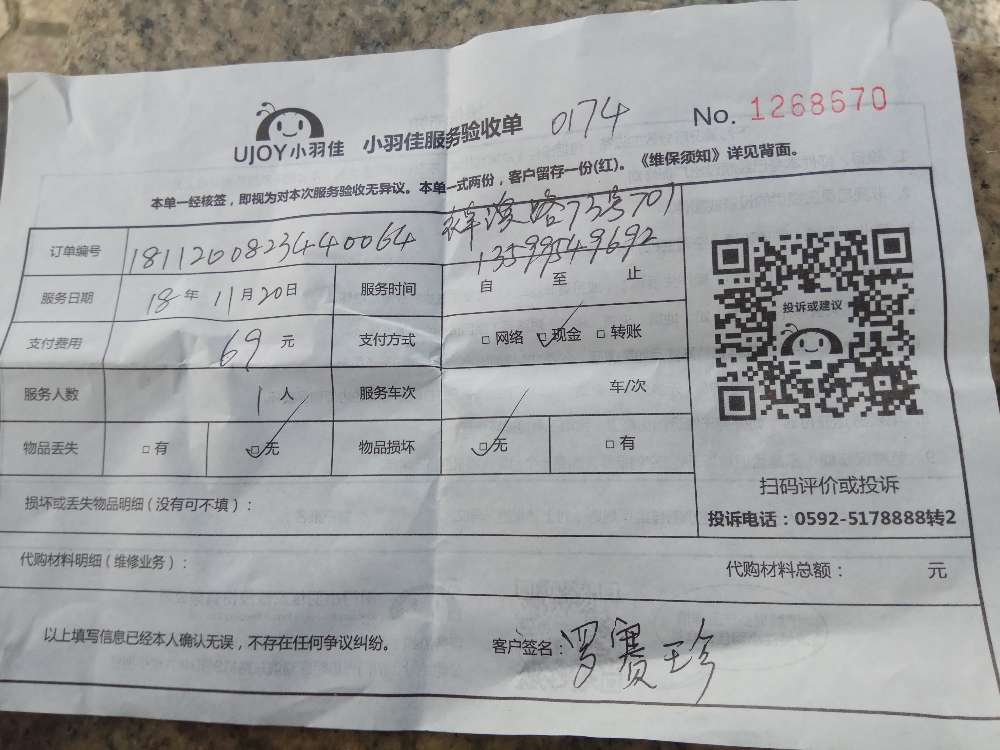 UJOY小羽佳 小羽佳服务验收单 0174 No. 1268670
本单一经核签，即视为对本次服务验收无异议。本单一式两份，客户留存一份(红)。《维保须知》详见背面。
路73号701
订单编号 18112008234440064 13599549692
服务日期 18年11月20日 服务时间 自 至 止
支付费用 69元 支付方式 □网络 ☑现金 □转账
服务人数 1人 服务车次 车/次
物品丢失 □有 ☑无 物品损坏 ☑无 □有
投诉或建议
扫码评价或投诉
投诉电话：0592-5178888转2
损坏或丢失物品明细（没有可不填）：
代购材料明细（维修业务）： 代购材料总额： 元
以上填写信息已经本人确认无误，不存在任何争议纠纷。 客户签名：罗赛珍